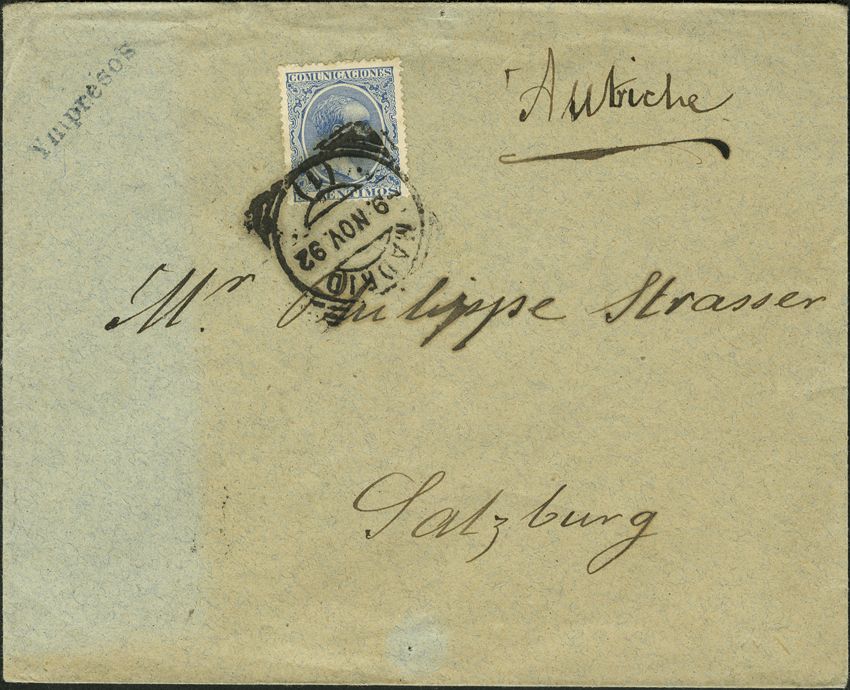 Ympresos
Autriche
COMUNICACIONES
CENTIMOS
(1)
9. NOV. 92
MADRID
Mr Philippe Strasser
Salzburg